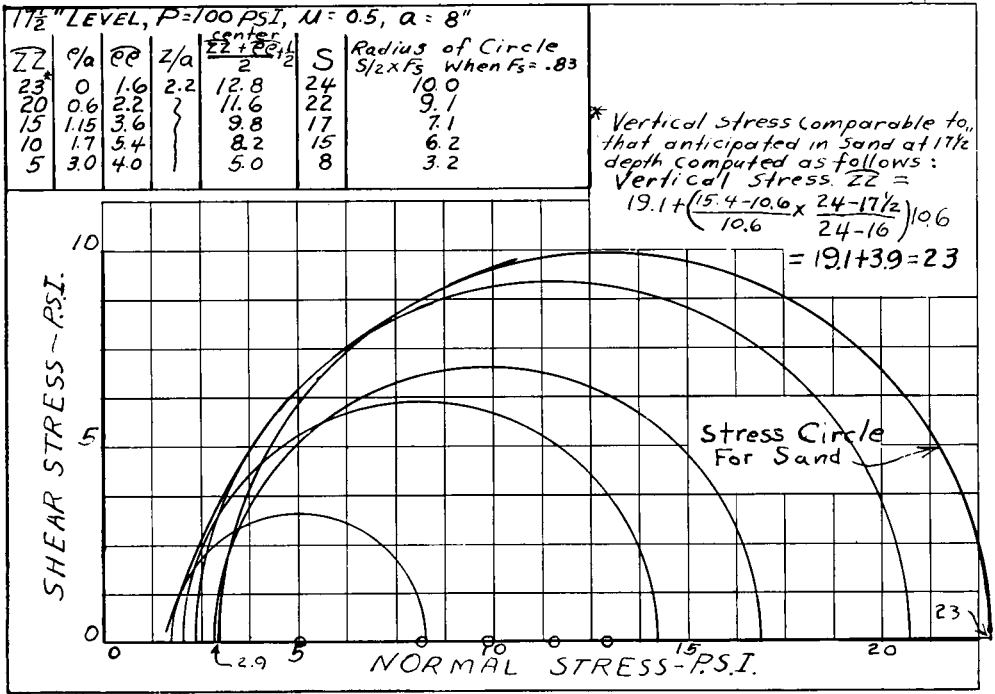 17½" LEVEL, P=100 PSI, μ = 0.5, a = 8"
ZZ ρ/a ρρ Z/a center ZZ + ρρ + ½ / 2 S Radius of Circle S/2 x Fs when Fs = .83
23* 0 1.6 2.2 12.8 24 10.0
20 0.6 2.2 11.6 22 9.1
15 1.15 3.6 9.8 17 7.1
10 1.7 5.4 8.2 15 6.2
5 3.0 4.0 5.0 8 3.2
* Vertical stress comparable to
that anticipated in sand at 17½"
depth computed as follows:
Vertical Stress ZZ =
19.1+(15.4-10.6/10.6 x 24-17½/24-16)10.6
= 19.1+3.9 = 23
SHEAR STRESS ~ P.S.I.
10
5
0
Stress Circle
For Sand
23
0 5 10 15 20
2.9
NORMAL STRESS-P.S.I.